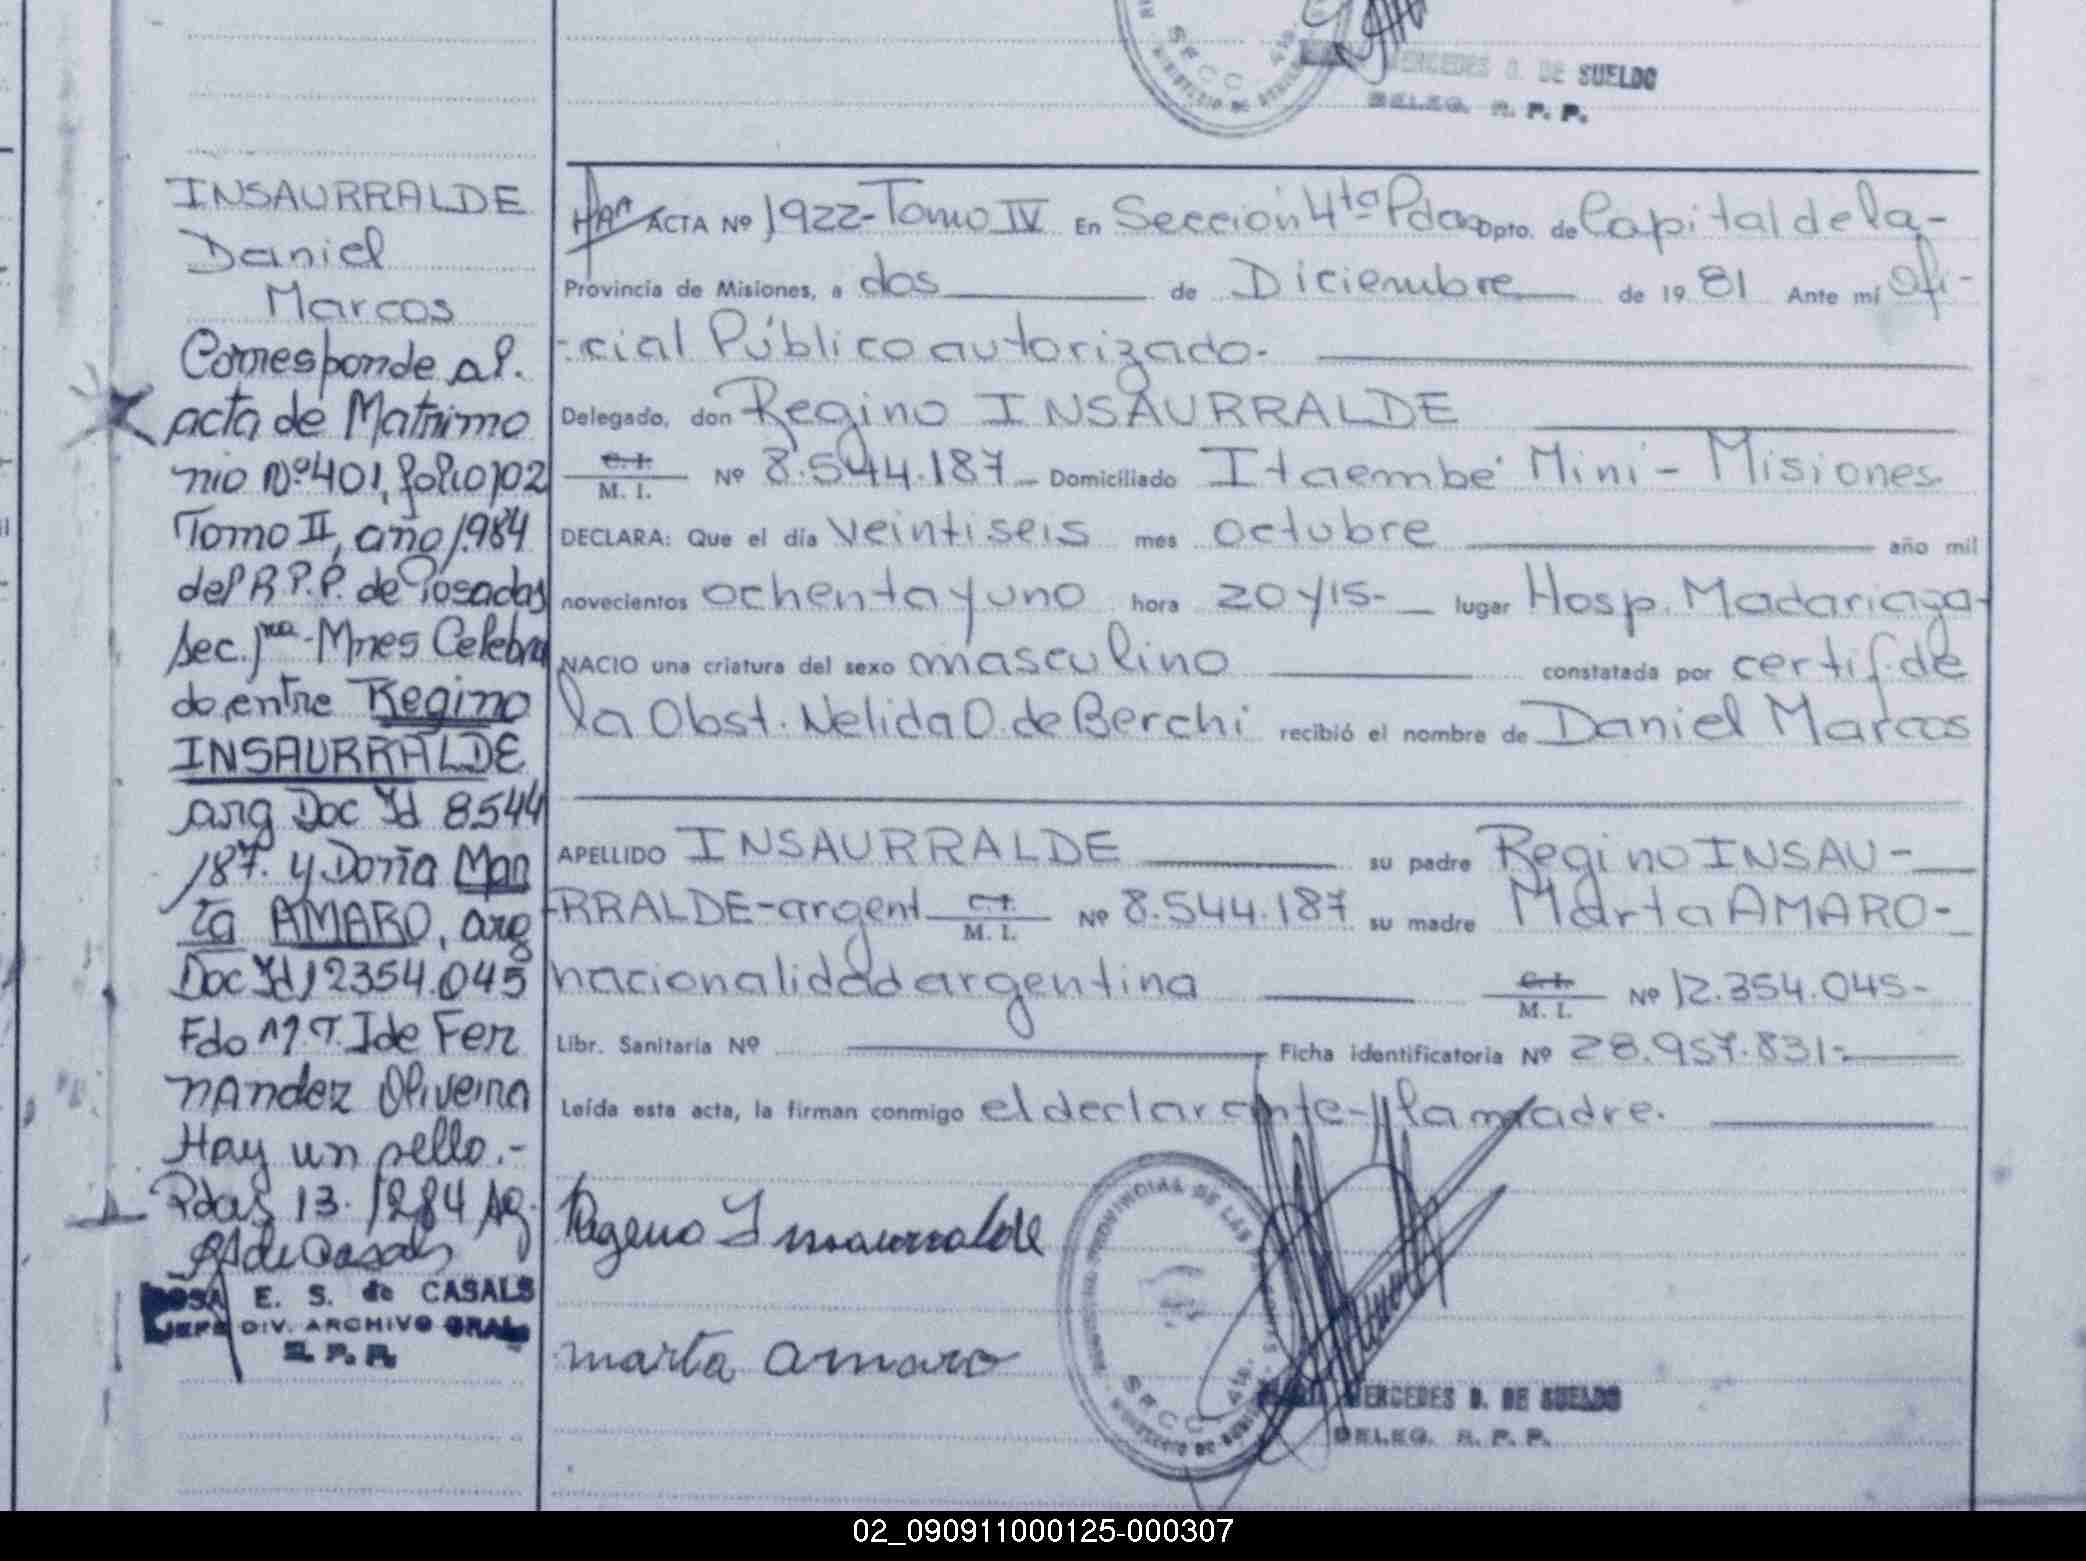 MERCEDES D. DE SUELDO
DELEG. R. P. P.
INSAURRALDE
Daniel
Marcos
Corresponde al.
acta de Matrimo
nio Nº 401, folio 102
Tomo II, año 1984
del R.P.P. de Posadas
Sec. 1ra - Mnes Celebra
do entre Regino
INSAURRALDE
arg Doc Id 8544
187. y Doña Mar
ta AMARO, arg
Doc Id 12354.045
Fdo M.T.I de Fer
nandez Oliveira
Hay un sello.-
Pdas 13.
RS de Casals
ROSA E. S. de CASALS
JEFE DIV. ARCHIVO GRAL
R. P. P.
ACTA Nº 1922-Tomo IV En Sección 4ta Pdas Dpto. de Capital de la-
Provincia de Misiones, a dos de Diciembre de 1981 Ante mí Ofi-
-cial Público autorizado.-
Delegado, don Regino INSAURRALDE
C. I. M. I. Nº 8.544.187 - Domiciliado Itaembé Mini - Misiones
DECLARA: Que el día veintiseis mes octubre año mil
novecientos ochenta y uno hora 20 y 15- lugar Hosp. Madariaga-
NACIO una criatura del sexo masculino constatada por certif. de
la Obst. Nelida O. de Berchi recibió el nombre de Daniel Marcos
APELLIDO INSAURRALDE su padre Regino INSAU-
-RRALDE-argent C. I. M. I. Nº 8.544.187 su madre Marta AMARO-
nacionalidad argentina C. I. M. I. Nº 12.354.045-
Libr. Sanitaria Nº Ficha identificatoria Nº 28.957.831-
Leída esta acta, la firman conmigo el declarante-y la madre.
Regino Insaurralde
marta amaro
MERCEDES D. DE SUELDO
DELEG. R. P. P.
02_090911000125-000307